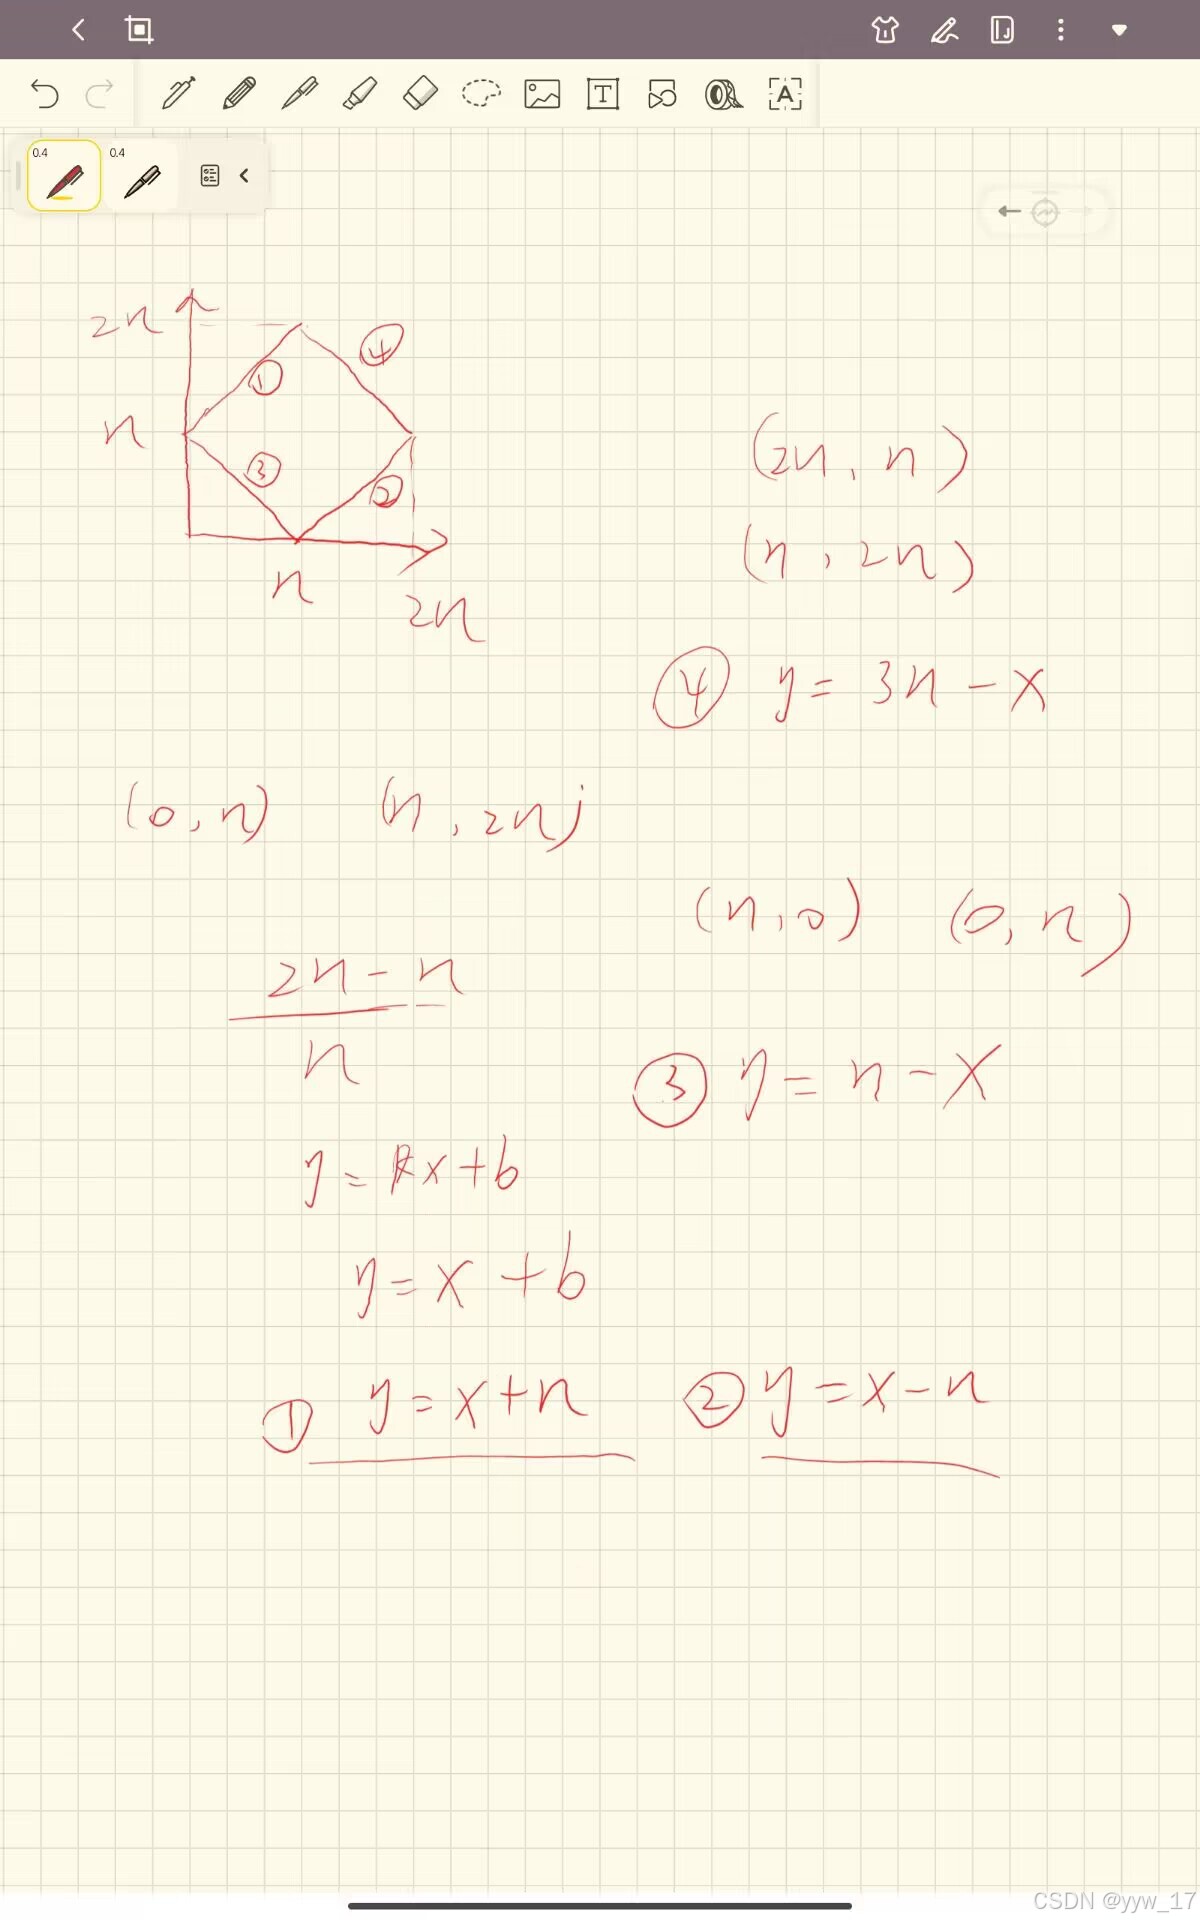 0.4 0.4
2n
④
①
n
③
②
n
2n
(2n, n)
(n, 2n)
④ y = 3n - x
(0, n) (n, 2n)
(n, 0) (0, n)
2n - n
n
③ y = n - x
y = kx + b
y = x + b
① y = x + n
② y = x - n
CSDN @yyw_17